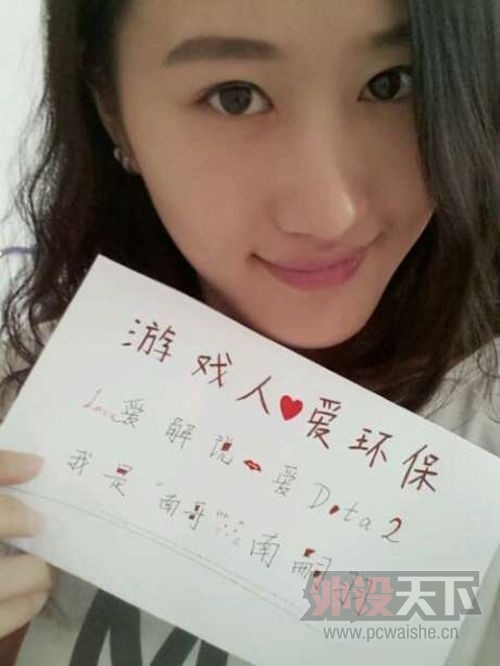 游戏人♥爱环保
Love爱解说爱Dota2
我是"南哥 南嗣
外设天下
www.pcwaishe.cn
M